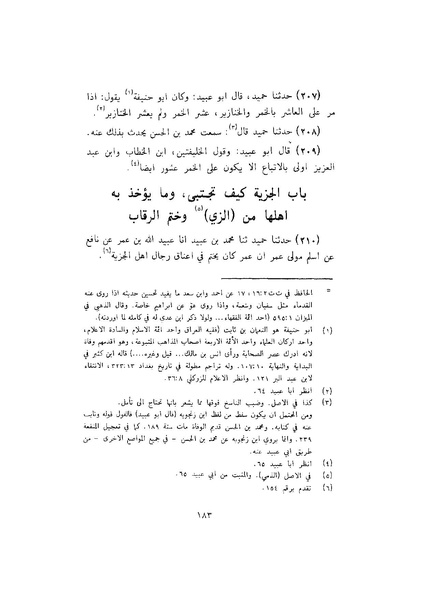 (٢٠٧) حدثنا حميد، قال ابو عبيد: وكان ابو حنيفة(١) يقول: اذا
مر على العاشر بالخمر والخنازير، عشر الخمر ولم يعشر الخنازير(٢).
(٢٠٨) حدثنا حميد قال(٣): سمعت محمد بن الحسن يحدث بذلك عنه.
(٢٠٩) قال ابو عبيد: وقول الخليفتين، ابن الخطاب وابن عبد
العزيز اولى بالاتباع الا يكون على الخمر عشور ايضا(٤).
باب الجزية كيف تجتبى، وما يؤخذ به
اهلها من (الزي)(٥) وختم الرقاب
(٢١٠) حدثنا حميد ثنا محمد بن عبيد انا عبيد الله بن عمر عن نافع
عن اسلم مولى عمر ان عمر كان يختم في اعناق رجال اهل الجزية(٦).
= الحافظ في ت ت ١٩:٢، ١٧ عن احمد وابن سعد ما يفيد تحسين حديثه اذا روى عنه
القدماء مثل سفيان وشعبة، واذا روى عن ابراهيم خاصة. وقال الذهبي في
الميزان ٥٩٥:١ (احد ائمة الفقهاء... ولولا ذكر ابن عدي له في كامله لما اوردته).
(١) ابو حنيفة هو النعمان بن ثابت (فقيه العراق واحد ائمة الاسلام والسادة الاعلام،
واحد اركان العلماء واحد الأئمة الاربعة اصحاب المذاهب المتبوعة، وهو اقدمهم وفاة
لانه ادرك عصر الصحابة ورأى انس بن مالك... قيل وغيره....) قاله ابن كثير في
البداية والنهاية ١٠٧:١٠. وله تراجم مطولة في تاريخ بغداد ٣٢٣:١٣، الانتقاء
لابن عبد البر ١٢١. وانظر الاعلام للزركلي ٣٦:٨.
(٢) انظر ابا عبيد ٦٤.
(٣) كذا في الاصل. وضبب الناسخ فوقها مما يشعر بانها تحتاج الى تأمل.
ومن المحتمل ان يكون سقط من لفظ ابن زنجويه (قال ابو عبيد) فالقول قوله وثابت
عنه في كتابه. ومحمد بن الحسن قديم الوفاة مات سنة ١٨٩. كما في تعجيل المنفعة
٢٣٩. وانما يروي ابن زنجويه عن محمد بن الحسن - في جميع المواضع الاخرى - من
طريق ابي عبيد عنه.
(٤) انظر ابا عبيد ٦٥.
(٥) في الاصل (الذمي). والمثبت من ابي عبيد ٦٥.
(٦) تقدم برقم ١٥٤.
١٨٣